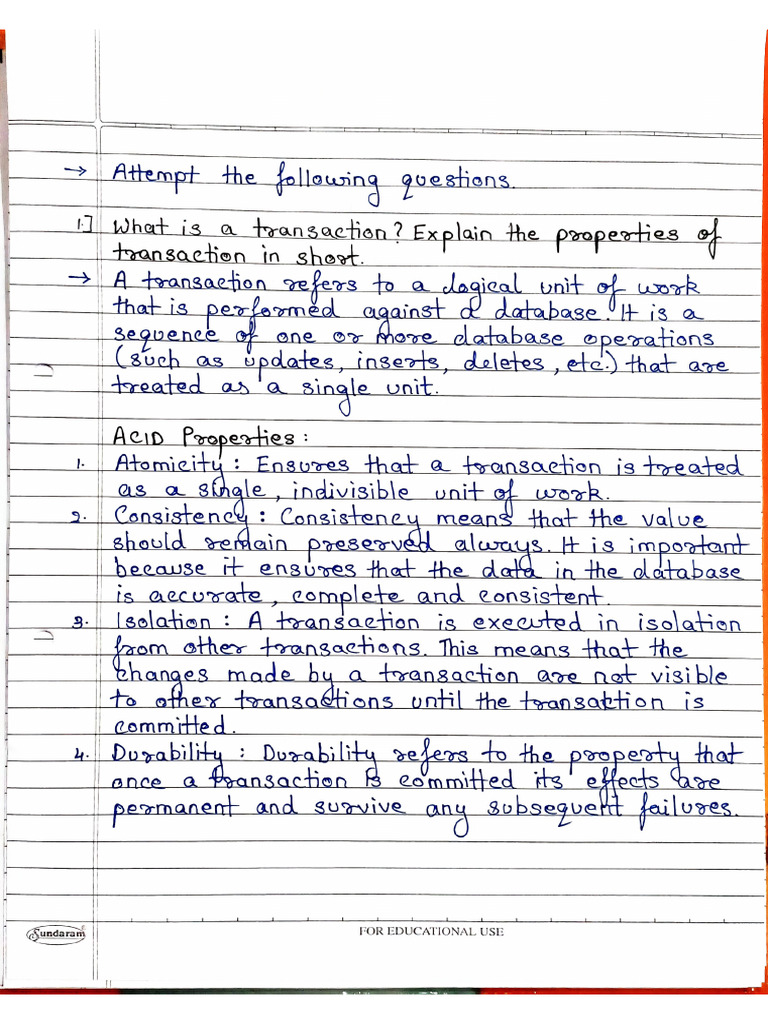 → Attempt the following questions.
1.] What is a transaction? Explain the properties of
transaction in short.
→ A transaction refers to a logical unit of work
that is performed against a database. It is a
sequence of one or more database operations
(such as updates, inserts, deletes, etc.) that are
treated as a single unit.
ACID Properties :
1. Atomicity : Ensures that a transaction is treated
as a single, indivisible unit of work.
2. Consistency : Consistency means that the value
should remain preserved always. It is important
because it ensures that the data in the database
is accurate, complete and consistent.
3. Isolation : A transaction is executed in isolation
from other transactions. This means that the
changes made by a transaction are not visible
to other transactions until the transaktion is
committed.
4. Durability : Durability refers to the property that
once a transaction is committed its effects are
permanent and survive any subsequent failures.
Sundaram
FOR EDUCATIONAL USE